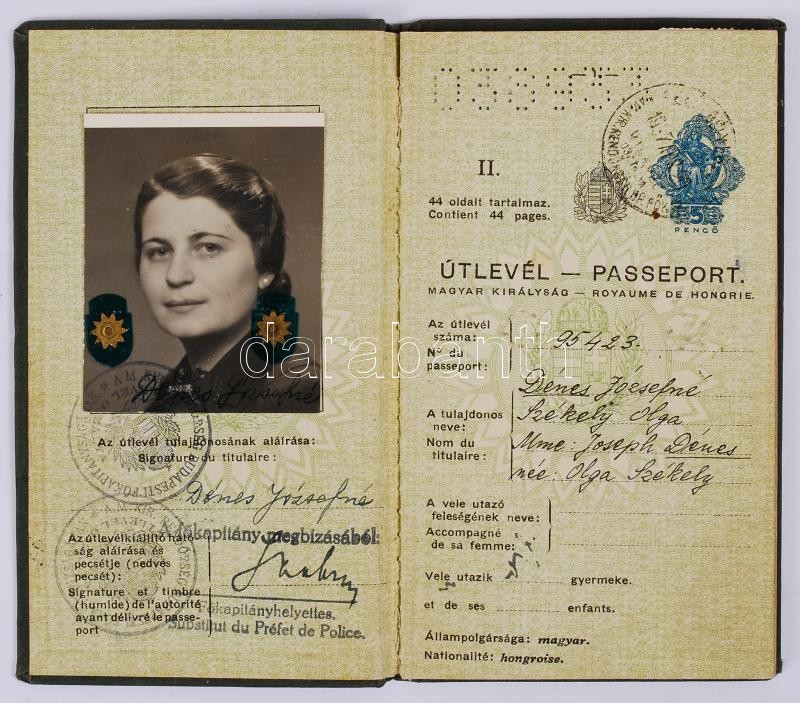 Dénes Józsefné
Az útlevél tulajdonosának aláírása:
Signature du titulaire:
Dénes Józsefné
A főkapitány megbízásából:
Az útlevélkiállító ható-
ság aláírása és
pecsétje (nedves
pecsét):
Signature et timbre
(humide) de l'autorité
ayant délivré le passe-
port
Főkapitányhelyettes.
Substitut du Préfet de Police.
II.
44 oldalt tartalmaz.
Contient 44 pages.
5
PENGŐ
ÚTLEVÉL — PASSEPORT.
MAGYAR KIRÁLYSÁG — ROYAUME DE HONGRIE.
Az útlevél
száma:
N° du
passeport:
95423.
A tulajdonos
neve:
Nom du
titulaire:
Dénes Józsefné
Székely Olga
Mme: Joseph Dénes
née: Olga Székely
A vele utazó
feleségének neve:
Accompagné
de sa femme:
Vele utazik gyermeke.
et de ses enfants.
Állampolgársága: magyar.
Nationalité: hongroise.
darabanth